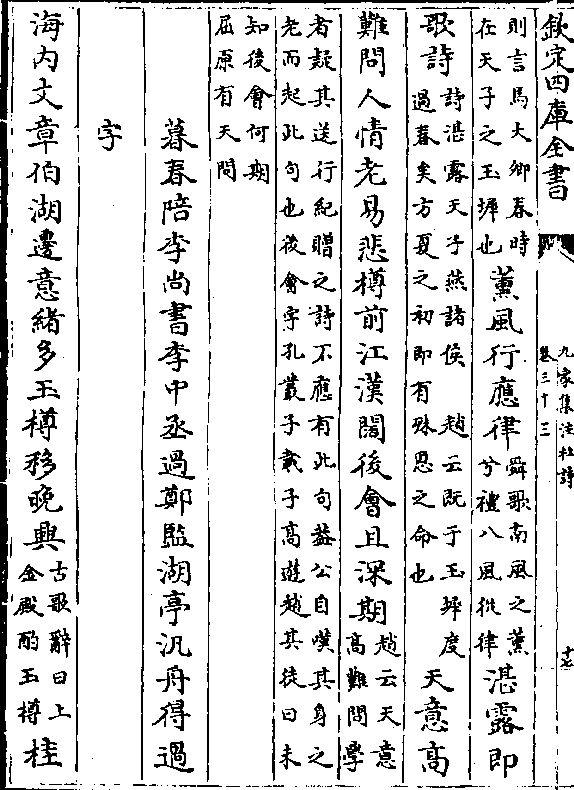 欽定四庫全書
九家集注杜詩
卷三十三
十七
則言馬大卿春時
在天子之玉墀也
薰風行應律
舜歌南風之薰
兮禮八風從律
湛露即
歌詩
詩湛露天子燕諸侯　趙云既于玉墀度
過春矣方夏之初即有殊恩之命也
天意高
難問人情老易悲樽前江漢闊後會且深期
趙云天意
高難問學
者疑其送行紀贈之詩不應有此句葢公自嘆其身之
老而起此句也後會字孔叢子載子高遊趙其徒曰未
知後會何期
屈原有天問
暮春陪李尚書李中丞過鄭監湖亭汎舟得過
字
海内文章伯湖邊意緒多玉樽移晚興
古歌辭曰上
金殿酌玉樽
桂